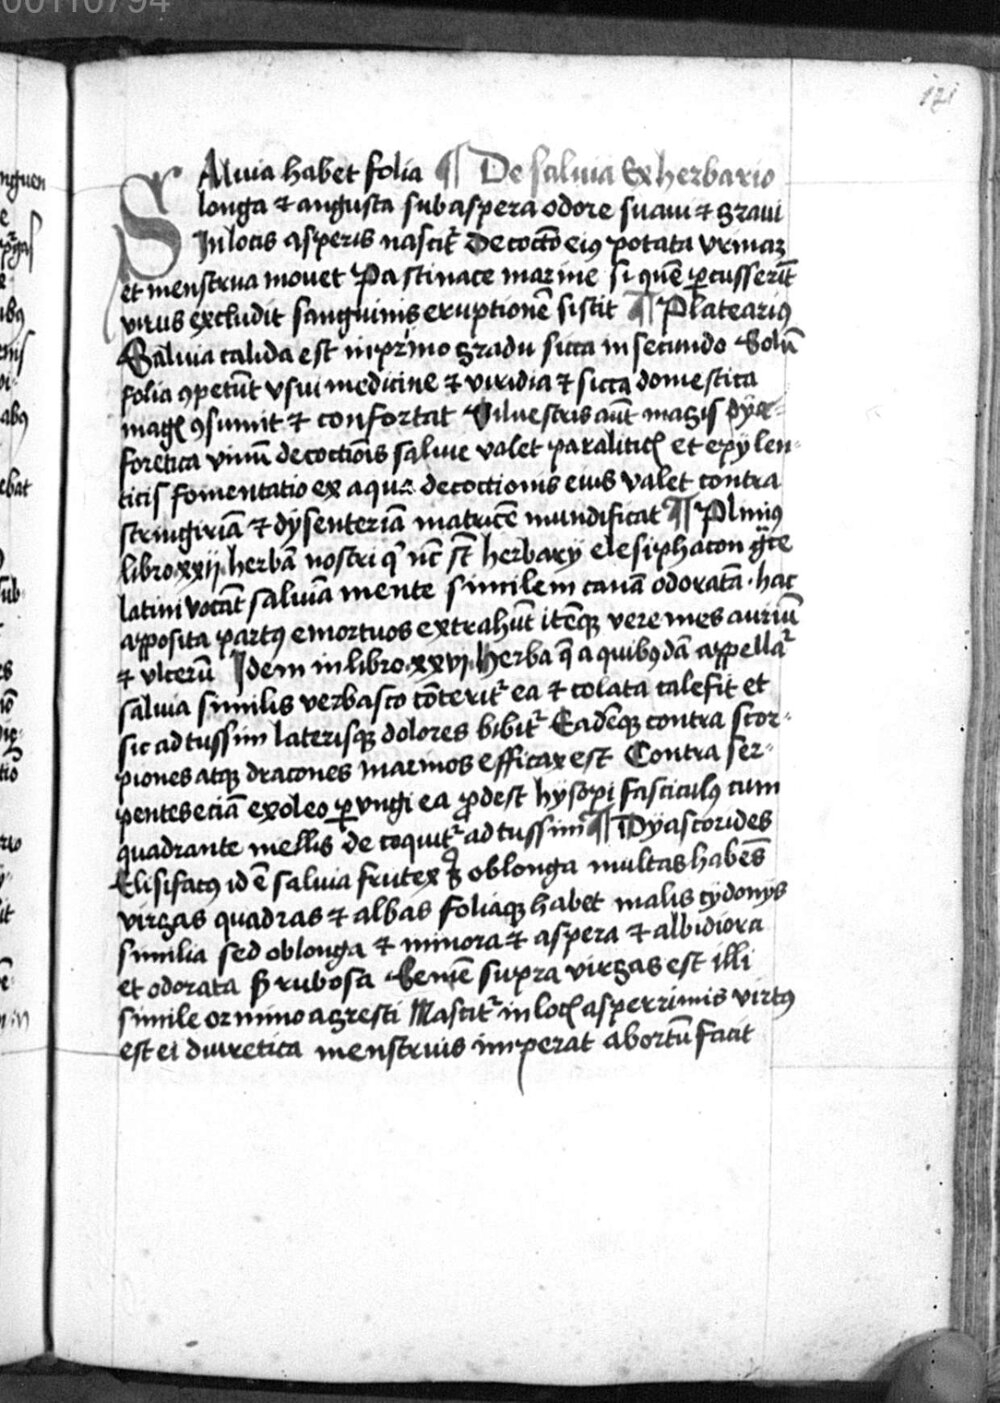 00110794
121
SAluia habet folia ¶ De saluia Ex herbario
longa ⁊ angusta subaspera odore suaui ⁊ graui
In locis asperis nascit᷑ Decocto eiꝰ potata vrinaꝫ
et menstrua mouet Pastinace marine si quē ꝑcusserīt
virus excludit sanguinis eruptionē sistit ¶ Plateariꝰ
Saluia calida est in primo gradu sicca in secundo Solū
folia ꝯpetūt vsui medicine ⁊ viridia ⁊ sicca domestica
magꝭ ꝯsumit ⁊ confortat Siluestris aūt magis dyæ-
foretica vinū decoctiōis saluie valet paraliticꝭ et epylen-
ticis fomentatio ex aqua decoctionis eius valet contra
stringiriā ⁊ dysenteriā matricē mundificat ¶ Pliniꝰ
libro xxij herbā nostri q̄ nc̄ st̄ herbarij elesiphacon gͣce
latini vocāt saluiā mente similem canā odoratā · hac
apposita partꝰ emortuos extrahūt itēqꝫ veremes auriū
⁊ vlcerū Idem in libro · xxvj · herba q̄ a quibꝰdā appellat᷑
saluia similis verbasco cōterit᷑ ea ⁊ colata calefit et
sic ad tussim laterisqꝫ dolores bibit᷑ Eadēqꝫ contra scor-
piones atqꝫ dracones marinos efficax est Contra ser-
pentes eciā ex oleo ꝑungi ea ꝓdest hysopi fasciculꝰ cum
quadrante mellis decoquit᷑ ad tussim ¶ Dyascorides
Elisifacꝰ id ē saluia frutex ē oblonga multas habēs
virgas quadras ⁊ albas foliaqꝫ habet malis cydonijs
similia sed oblonga ⁊ minora ⁊ aspera ⁊ albidiora
et odorata s̄ rubosa Semē supra virgas est illi
simile ormino agresti Nascit᷑ in locꝭ asperrimis virtꝰ
est ei diuretica menstruis imperat abortū facit